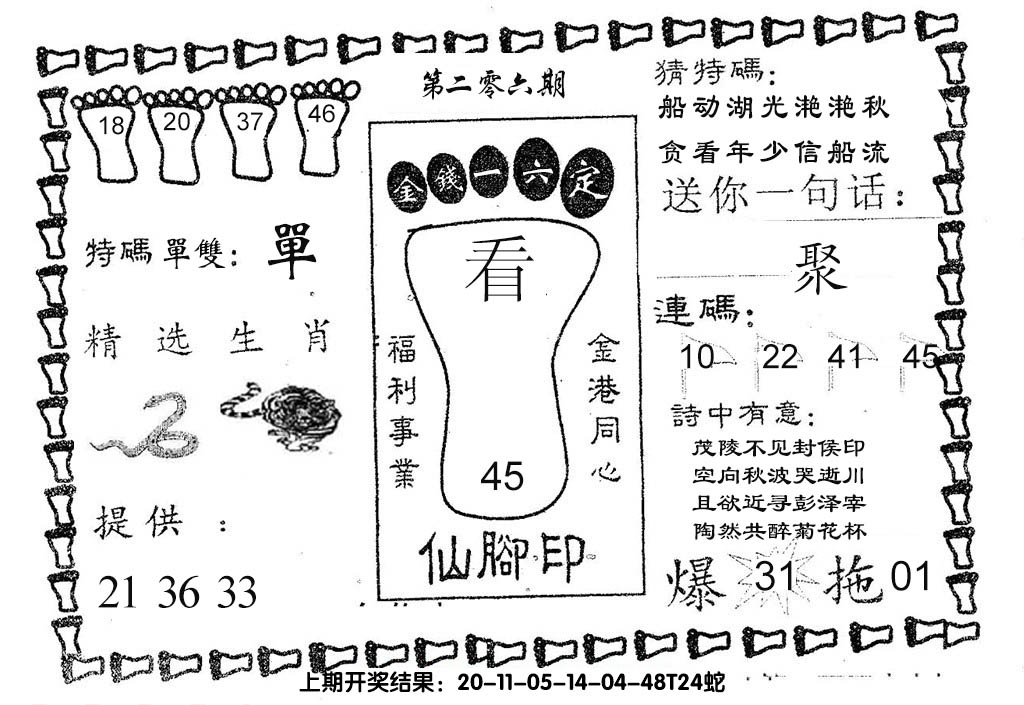 第二零六期
18 20 37 46
特碼單雙：單
精选生肖
提供：
21 36 33
金錢一六定
看
福利事業
金港同心
45
仙腳印
猜特碼：
船动湖光滟滟秋
贪看年少信船流
送你一句话：
聚
連碼：
10 22 41 45
詩中有意：
茂陵不见封侯印
空向秋波哭逝川
且欲近寻彭泽宰
陶然共醉菊花杯
爆 31 拖 01
上期开奖结果：20-11-05-14-04-48T24蛇